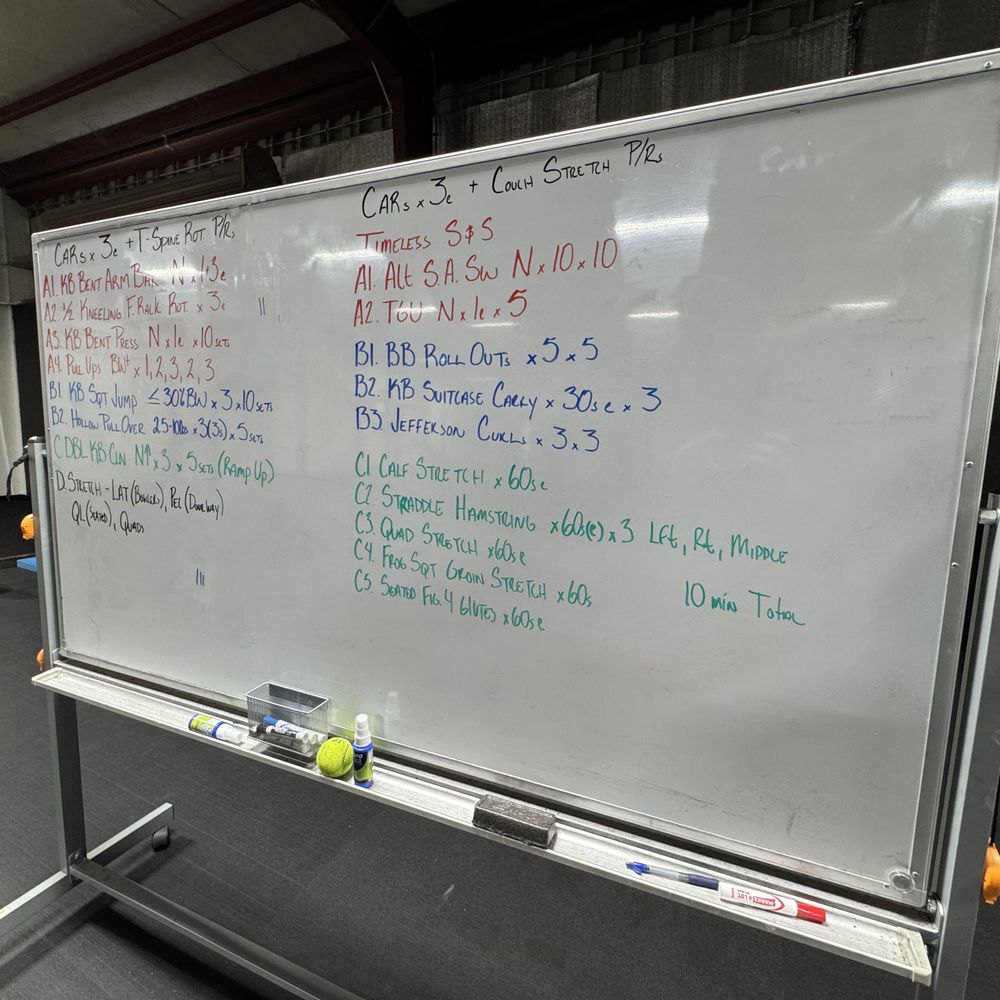 CARs x 3e + T-Spine Rot P/Rs
A1. KB Bent Arm Bar N x 1+3e
A2 ½ Kneeling F. Rack Rot. x 3e
A3. KB Bent Press N x 1e x 10 sets
A4. Pull Ups BW+ x 1, 2, 3, 2, 3
B1. KB Sqt Jump ≤ 30% BW x 3 x 10 sets
B2. Hollow Pull Over 25-10lbs x 3(3s) x 5 sets
C. DBL KB Cln N↑ x 3 x 5 sets (Ramp Up)
D. Stretch - Lat (Bowlers), Pec (Doorway)
QL (Seated), Quads
CARs x 3e + Couch Stretch P/Rs
Timeless S&S
A1. Alt S.A. Sw N x 10 x 10
A2. TGU N x 1e x 5
B1. BB Roll Outs x 5 x 5
B2. KB Suitcase Carry x 30s e x 3
B3. Jefferson Curls x 3 x 3
C1 Calf Stretch x 60s e
C2. Straddle Hamstring x 60s(e) x 3 Lft, Rt, Middle
C3. Quad Stretch x 60s e
C4. Frog Sqt Groin Stretch x 60s
C5. Seated Fig. 4 Glutes x 60s e
10 min Total
MARKS A LOT